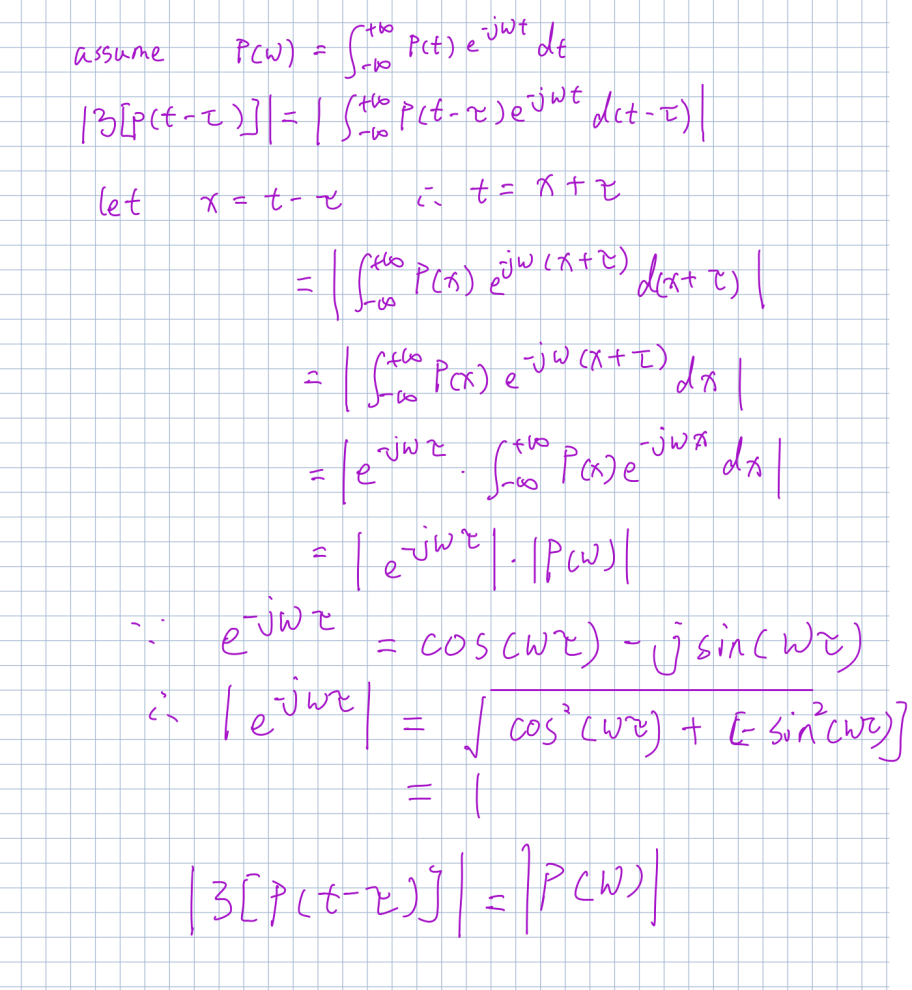 assume P(ω) = ∫_{-∞}^{+∞} P(t) e^{-jωt} dt
|ℑ[P(t-τ)]| = | ∫_{-∞}^{+∞} P(t-τ) e^{-jωt} d(t-τ) |
let x = t-τ ∴ t = x+τ
= | ∫_{-∞}^{+∞} P(x) e^{-jω(x+τ)} d(x+τ) |
= | ∫_{-∞}^{+∞} P(x) e^{-jω(x+τ)} dx |
= | e^{-jωτ} · ∫_{-∞}^{+∞} P(x) e^{-jωx} dx |
= | e^{-jωτ} | · |P(ω)|
∵ e^{-jωτ} = cos(ωτ) - j sin(ωτ)
∴ | e^{-jωτ} | = √(cos²(ωτ) + [-sin²(ωτ)]
= 1
|ℑ[P(t-τ)]| = |P(ω)|